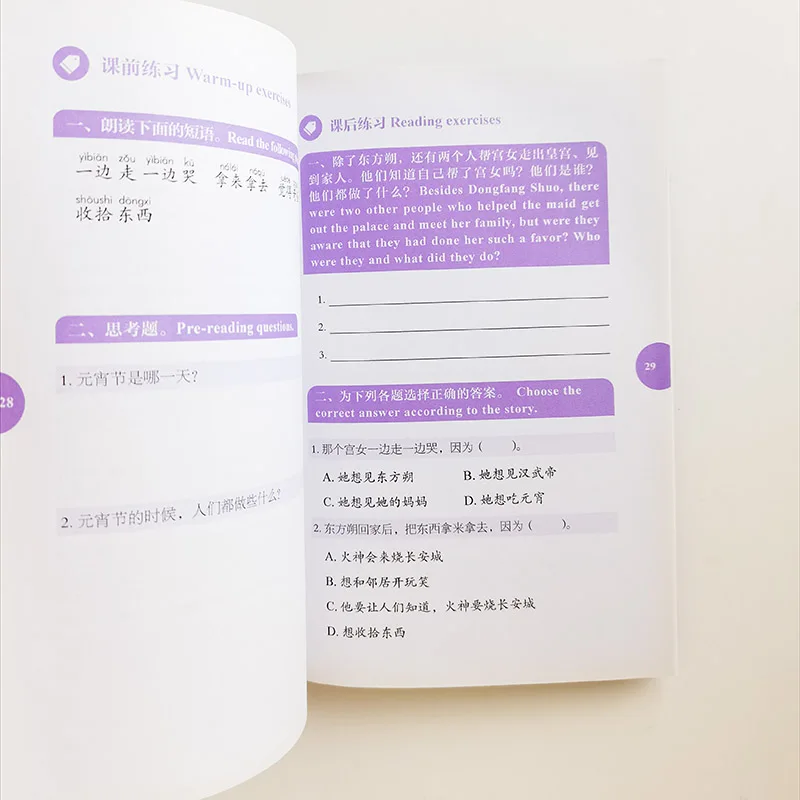 课前练习 Warm-up exercises
一、朗读下面的短语。Read the following
yībiān zǒu yībiān kū nálái náqù
一边 走 一边 哭 拿来拿去
shōushi dōngxi
收拾 东西
二、思考题。Pre-reading questions.
1. 元宵节是哪一天?
2. 元宵节的时候，人们都做些什么?
28
课后练习 Reading exercises
一、除了东方朔，还有两个人帮宫女走出皇宫、见
到家人。他们知道自己帮了宫女吗？他们是谁？
他们都做了什么？ Besides Dongfang Shuo, there
were two other people who helped the maid get
out the palace and meet her family, but were they
aware that they had done her such a favor? Who
were they and what did they do?
1.
2.
3.
二、为下列各题选择正确的答案。 Choose the
correct answer according to the story.
1. 那个宫女一边走一边哭，因为（ ）。
A. 她想见东方朔 B. 她想见汉武帝
C. 她想见她的妈妈 D. 她想吃元宵
2. 东方朔回家后，把东西拿来拿去，因为（ ）。
A. 火神会来烧长安城
B. 想和邻居开玩笑
C. 他要让人们知道，火神要烧长安城
D. 想收拾东西
29